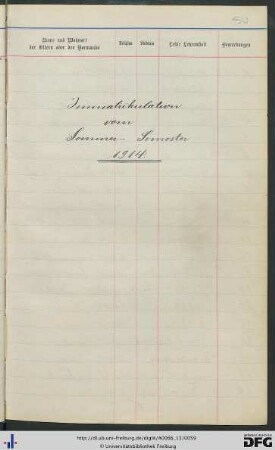 Name und Wohnort
der Eltern oder des Vormunds
Religion
Letzte Lehranstalt
Bemerkungen
Immatrikulation
vom
Sommer-Semester
1914.
http://dl.ub.uni-freiburg.de/diglit/A0066_13/0059
© Universitätsbibliothek Freiburg
DFG